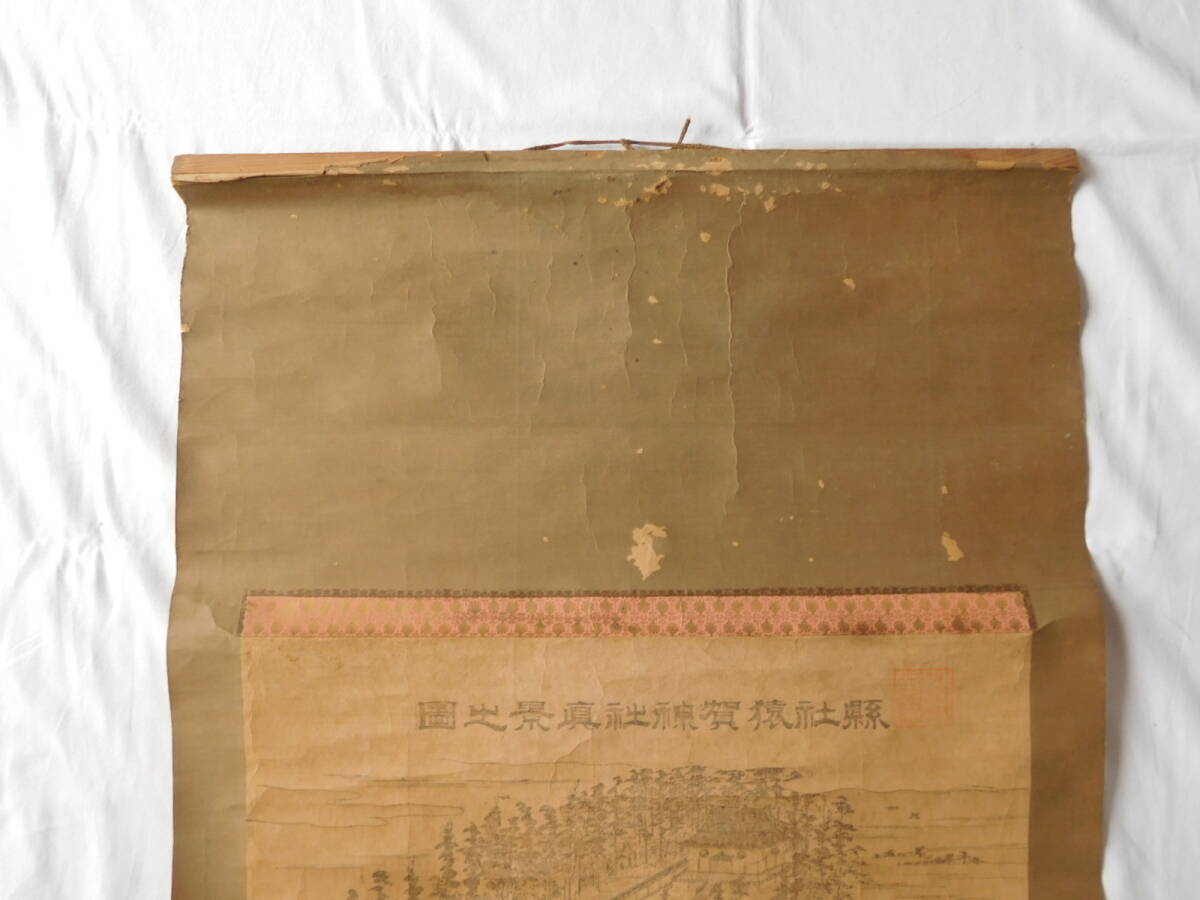 縣社猿賀神社真景之圖